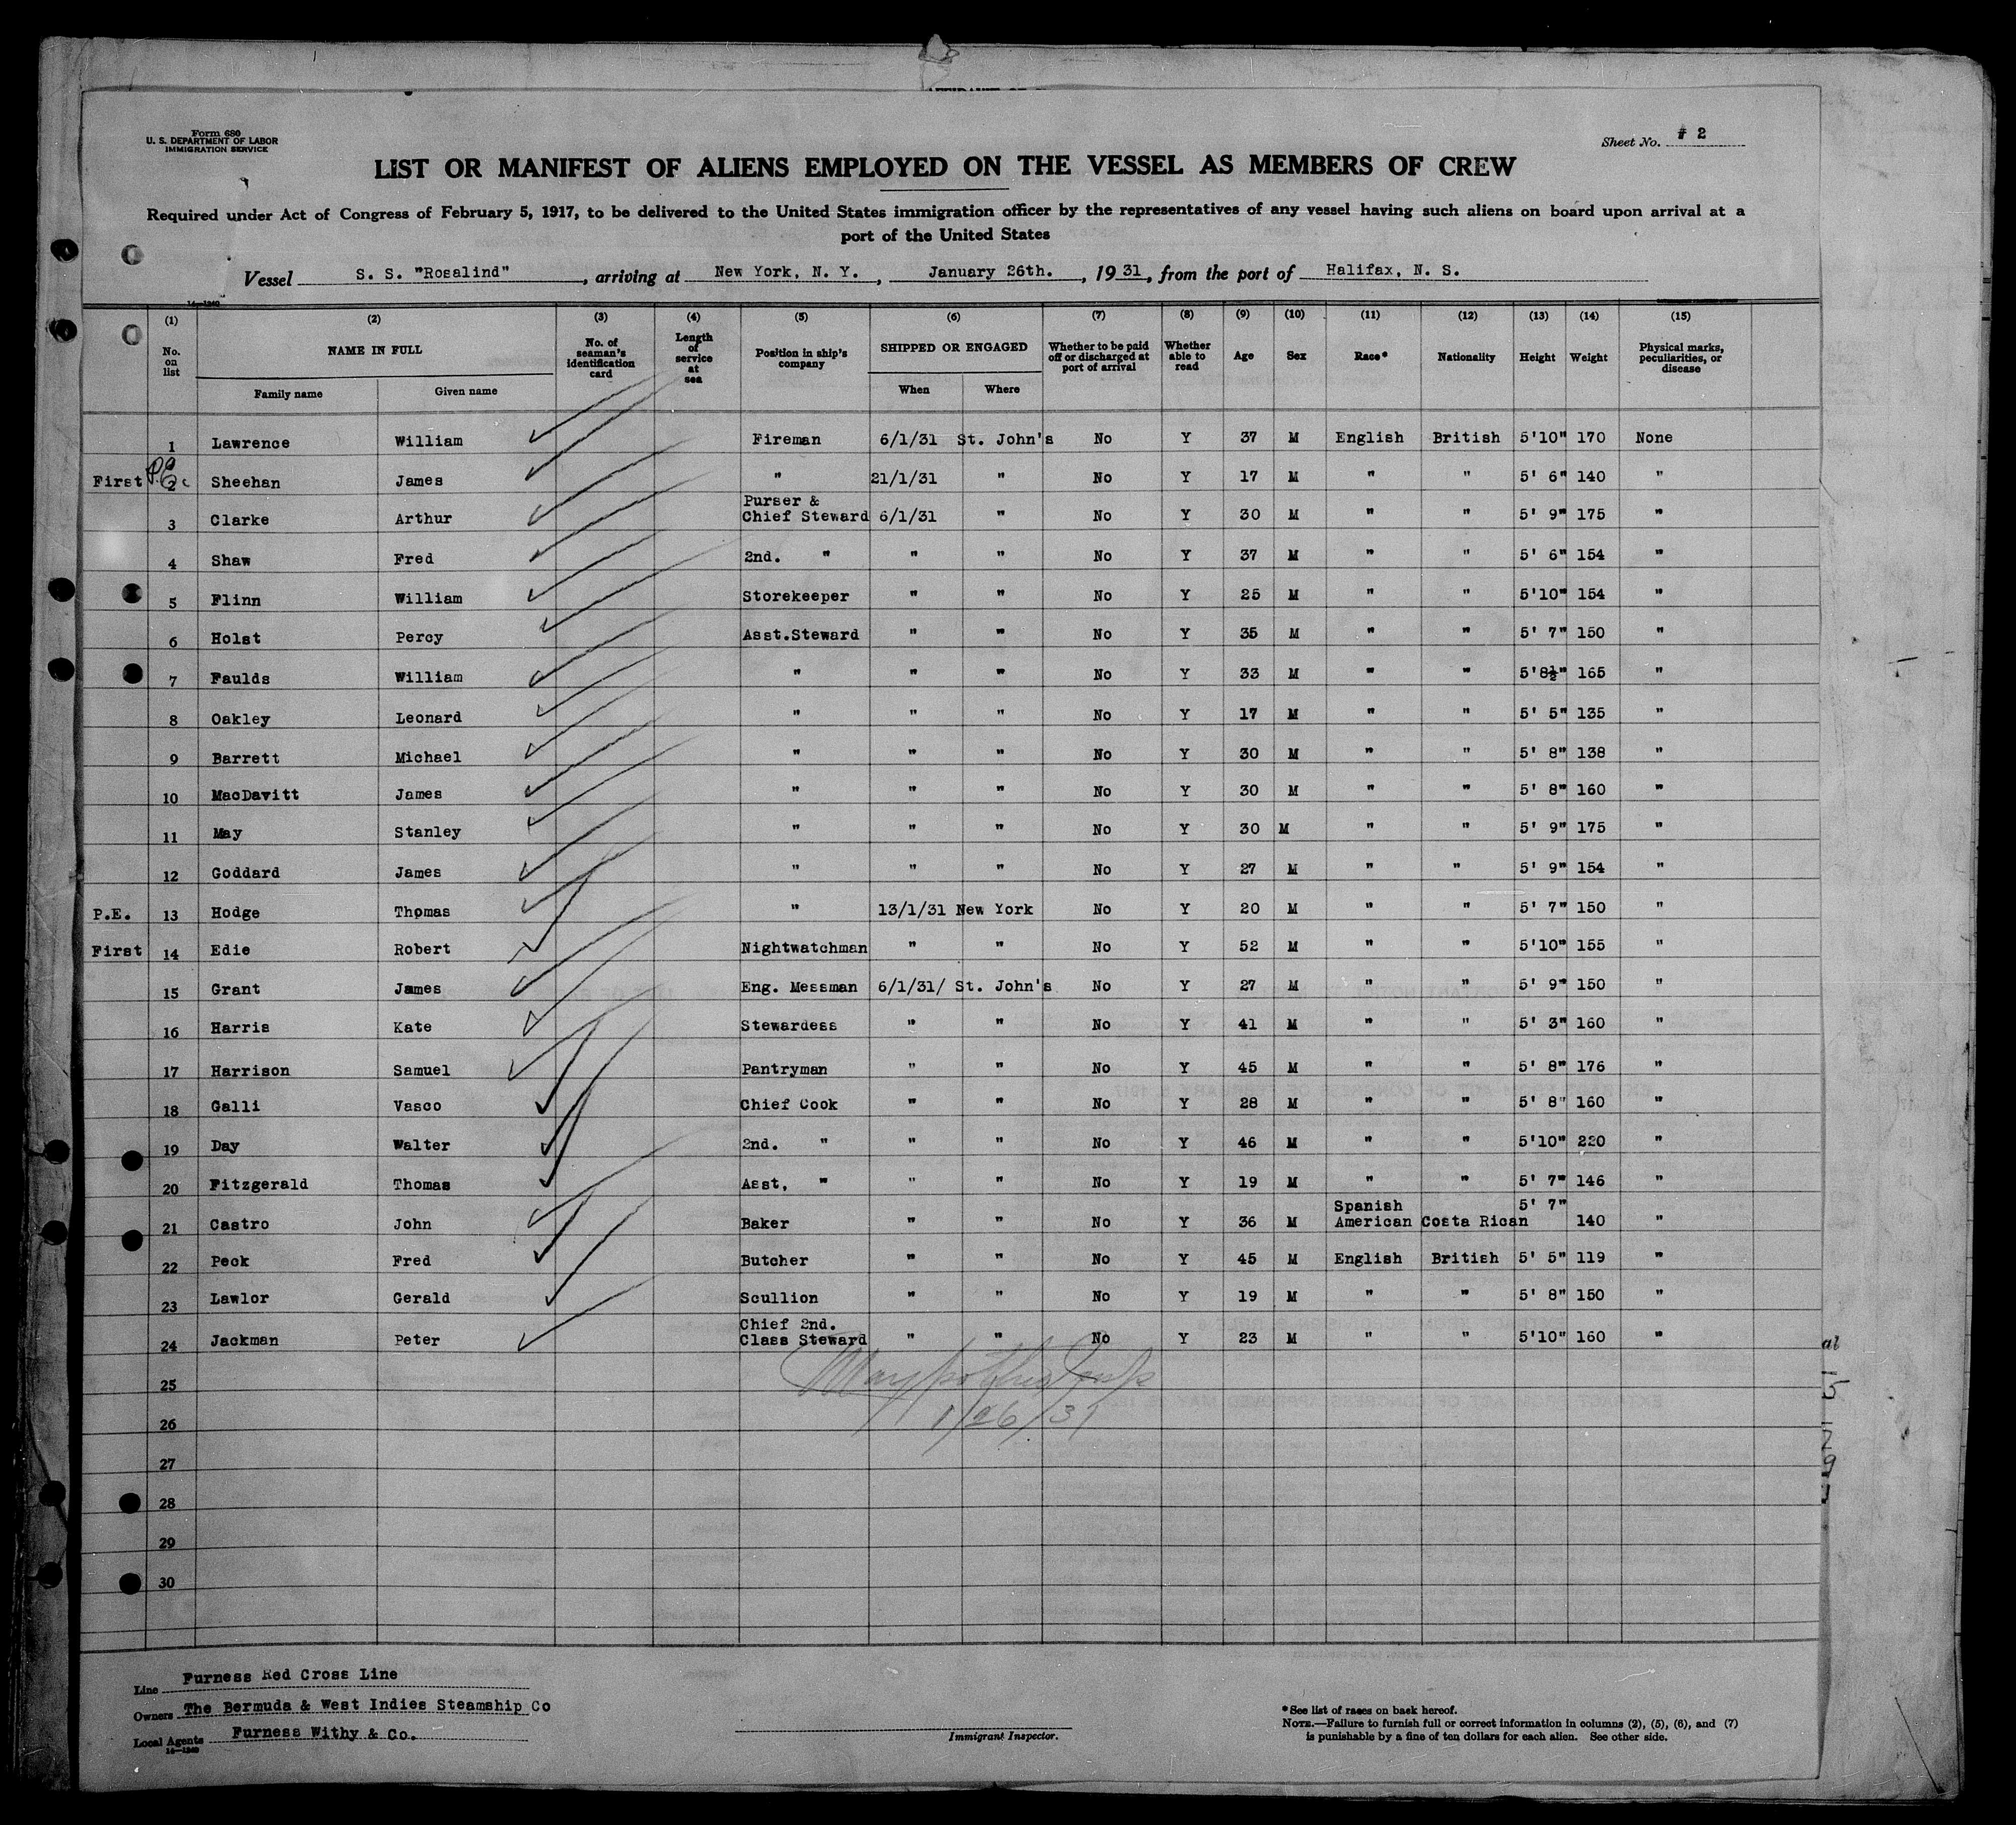 Form 680
U. S. DEPARTMENT OF LABOR
IMMIGRATION SERVICE
Sheet No. # 2
LIST OR MANIFEST OF ALIENS EMPLOYED ON THE VESSEL AS MEMBERS OF CREW
Required under Act of Congress of February 5, 1917, to be delivered to the United States immigration officer by the representatives of any vessel having such aliens on board upon arrival at a
port of the United States
Vessel S. S. "Rosalind", arriving at New York, N. Y., January 26th., 1931, from the port of Halifax, N. S.
14—1240
(1) (2) (3) (4) (5) (6) (7) (8) (9) (10) (11) (12) (13) (14) (15)
No. on list NAME IN FULL Family name Given name No. of seaman's identification card Length of service at sea Position in ship's company SHIPPED OR ENGAGED When Where Whether to be paid off or discharged at port of arrival Whether able to read Age Sex Race* Nationality Height Weight Physical marks, peculiarities, or disease
1 Lawrence William Fireman 6/1/31 St. John's No Y 37 M English British 5'10" 170 None
First P.E. 2 Sheehan James " 21/1/31 " No Y 17 M " " 5' 6" 140 "
3 Clarke Arthur Purser & Chief Steward 6/1/31 " No Y 30 M " " 5' 9" 175 "
4 Shaw Fred 2nd. " " " No Y 37 M " " 5' 6" 154 "
5 Flinn William Storekeeper " " No Y 25 M " " 5'10" 154 "
6 Holst Percy Asst.Steward " " No Y 35 M " " 5' 7" 150 "
7 Faulds William " " " No Y 33 M " " 5'8½" 165 "
8 Oakley Leonard " " " No Y 17 M " " 5' 5" 135 "
9 Barrett Michael " " " No Y 30 M " " 5' 8" 138 "
10 MacDavitt James " " " No Y 30 M " " 5' 8" 160 "
11 May Stanley " " " No Y 30 M " " 5' 9" 175 "
12 Goddard James " " " No Y 27 M " " 5' 9" 154 "
P.E. 13 Hodge Thomas " 13/1/31 New York No Y 20 M " " 5' 7" 150 "
First 14 Edie Robert Nightwatchman " " No Y 52 M " " 5'10" 155 "
15 Grant James Eng. Messman 6/1/31/ St. John's No Y 27 M " " 5' 9" 150 "
16 Harris Kate Stewardess " " No Y 41 M " " 5' 3" 160 "
17 Harrison Samuel Pantryman " " No Y 45 M " " 5' 8" 176 "
18 Galli Vasco Chief Cook " " No Y 28 M " " 5' 8" 160 "
19 Day Walter 2nd. " " " No Y 46 M " " 5'10" 220 "
20 Fitzgerald Thomas Asst. " " " No Y 19 M " " 5' 7" 146 "
21 Castro John Baker " " No Y 36 M Spanish American Costa Rican 5' 7" 140 "
22 Peck Fred Butcher " " No Y 45 M English British 5' 5" 119 "
23 Lawlor Gerald Scullion " " No Y 19 M " " 5' 8" 150 "
24 Jackman Peter Chief 2nd. Class Steward " " No Y 23 M " " 5'10" 160 "
25
1/26/31
26
27
28
29
30
Line Furness Red Cross Line
Owners The Bermuda & West Indies Steamship Co
Local Agents Furness Withy & Co.
14—1240
Immigrant Inspector.
*See list of races on back hereof.
NOTE.—Failure to furnish full or correct information in columns (2), (5), (6), and (7)
is punishable by a fine of ten dollars for each alien. See other side.